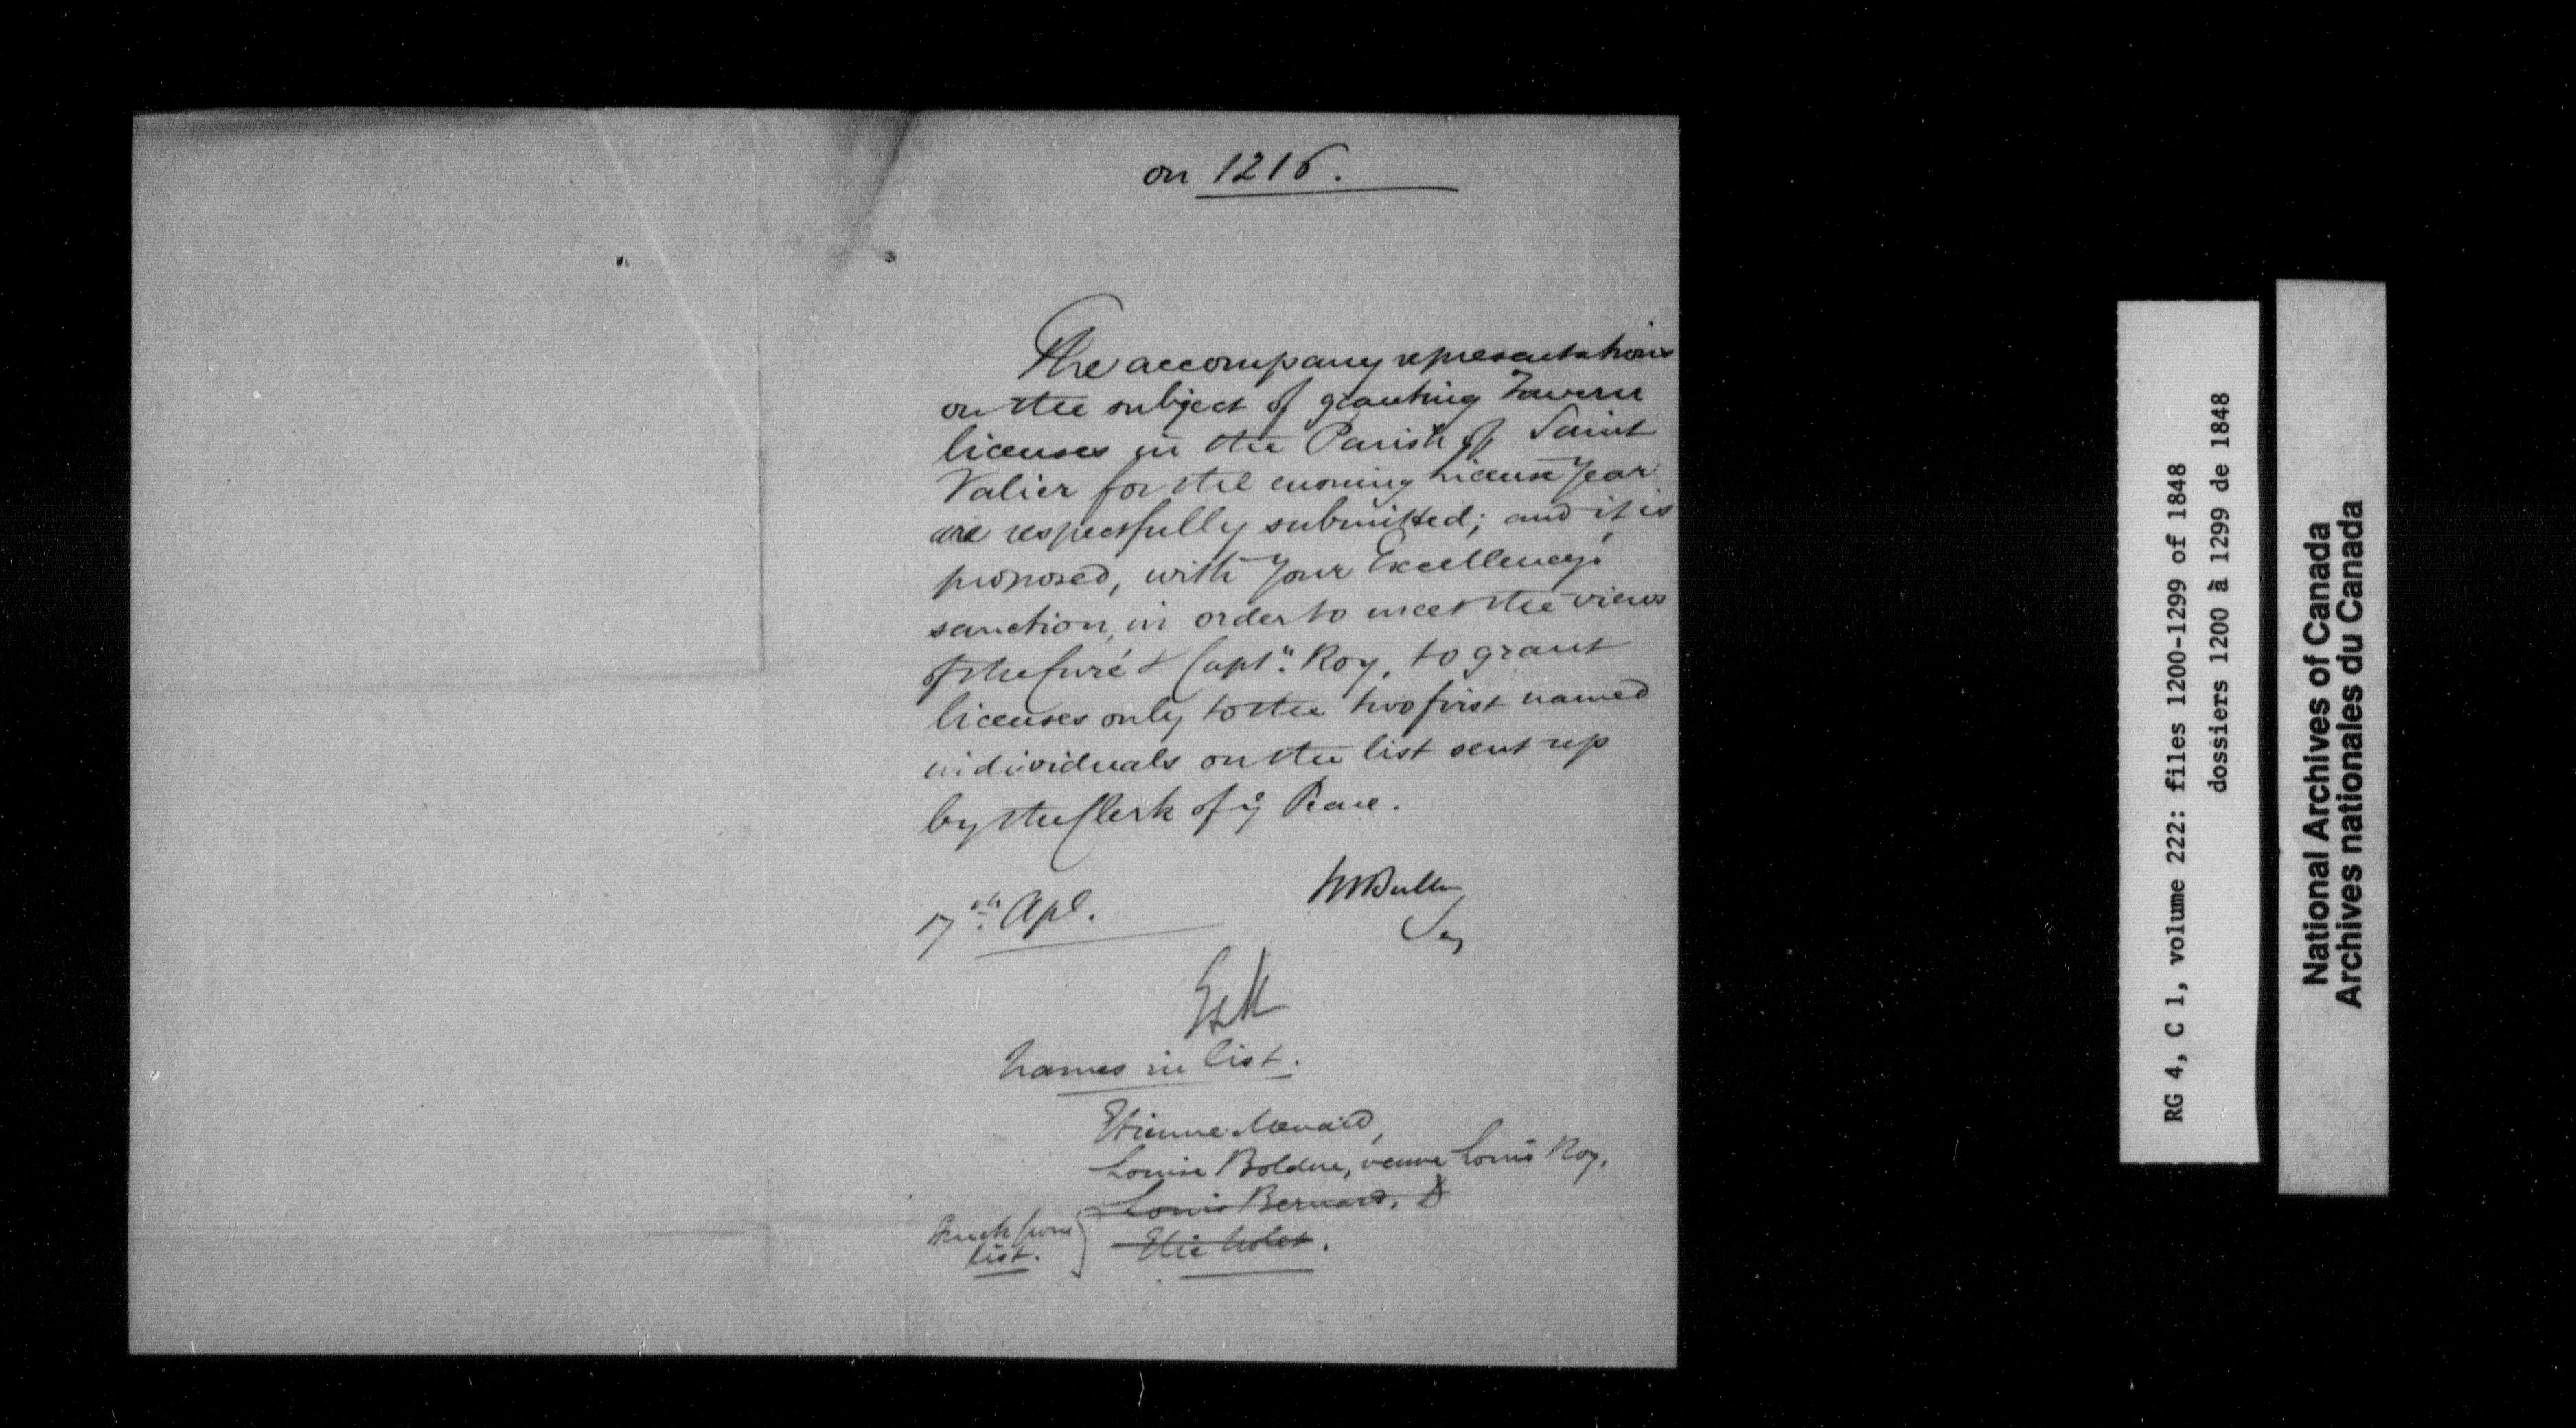 on 1216.
The accompany representations
on the subject of granting Tavern
licenses in the Parish of Saint
Valier for the ensuing License Year
are respectfully submitted; and it is
proposed, with Your Excellency's
sanction, in order to meet the views
of the Curé & Captn. Roy, to grant
licenses only to the two first named
individuals on the list sent up
by the Clerk of ye Peace.
17th Apl.
Names in list.
Etienne Menard,
Louise Bolduc, veuve Louis Roy,
Louis Bernard,
Elie
Struck from
list.
RG 4, C 1, volume 222: files 1200-1299 of 1848
dossiers 1200 à 1299 de 1848
National Archives of Canada
Archives nationales du Canada